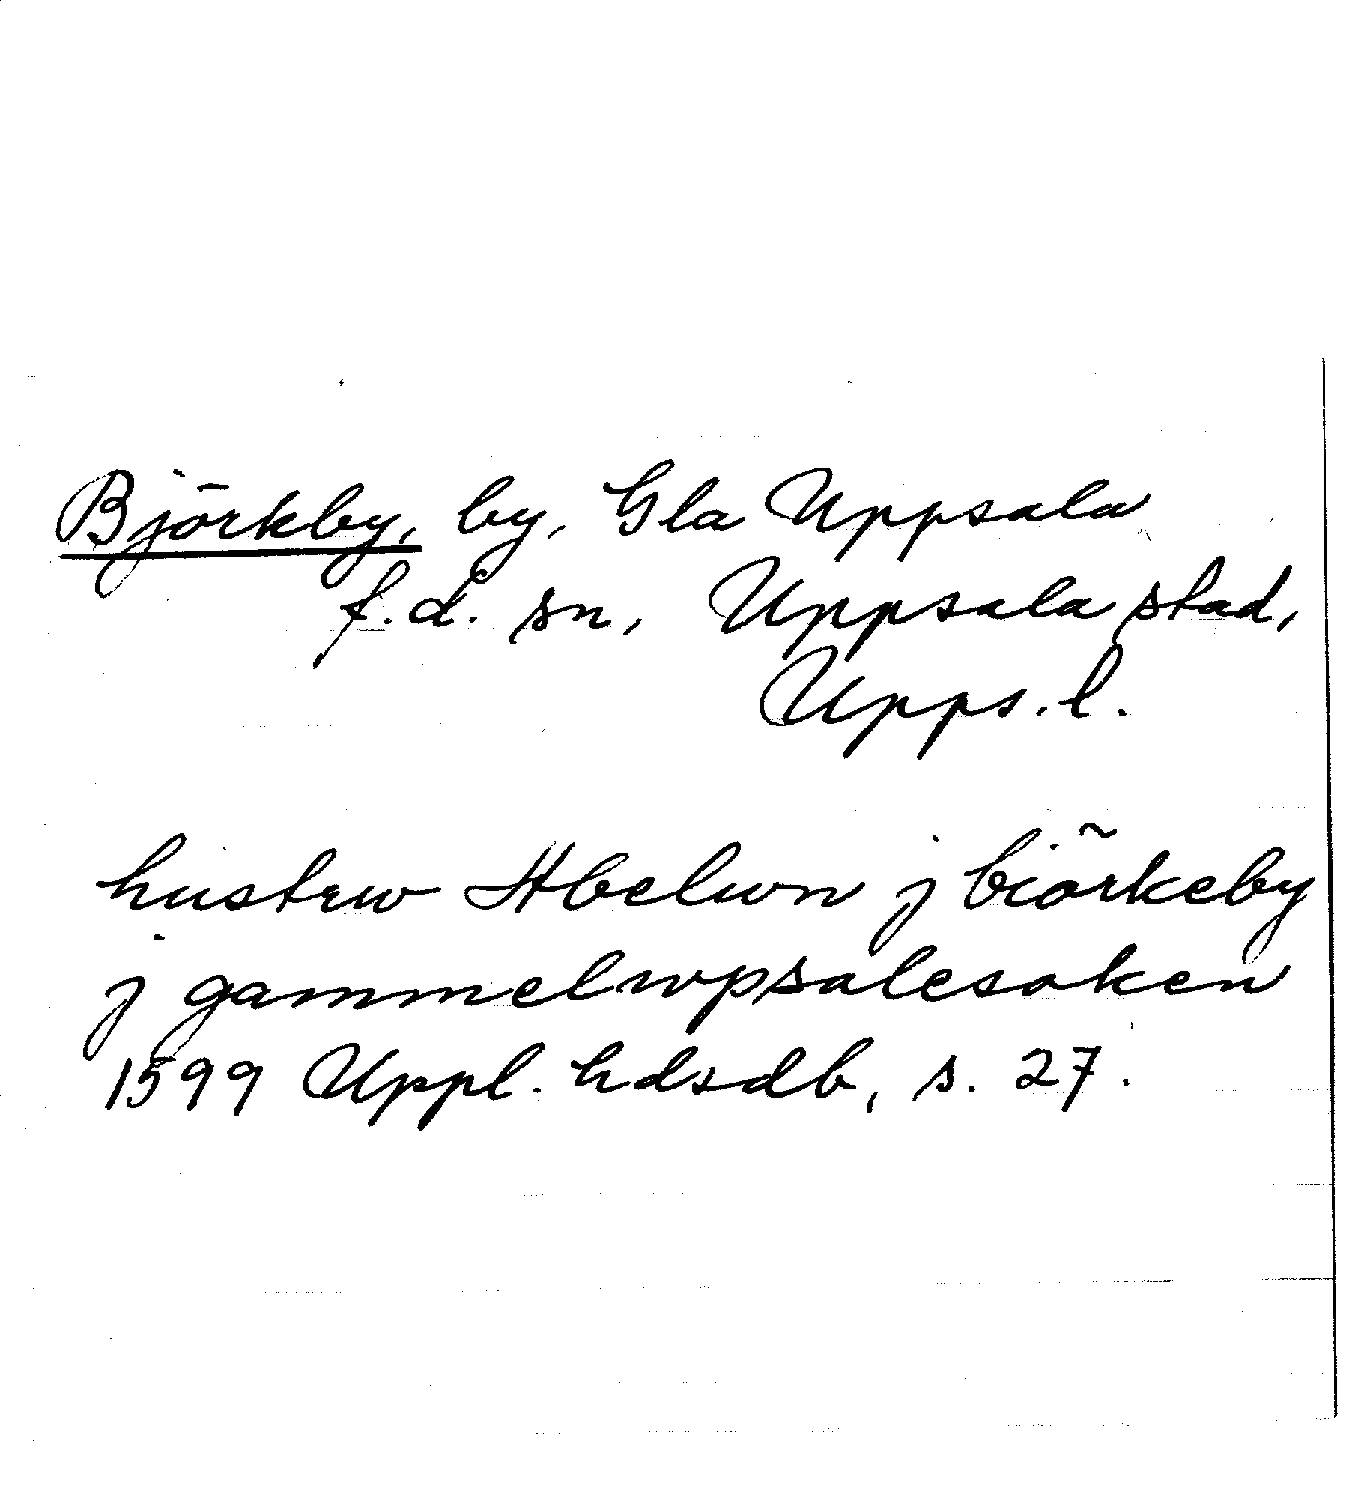 Björkby, by, Gla Uppsala
f.d. sn, Uppsala stad,
Upps. l.
hustrw j biörkeby
j gammelwpsalesoken
1599 Uppl. hdsdb, s. 27.